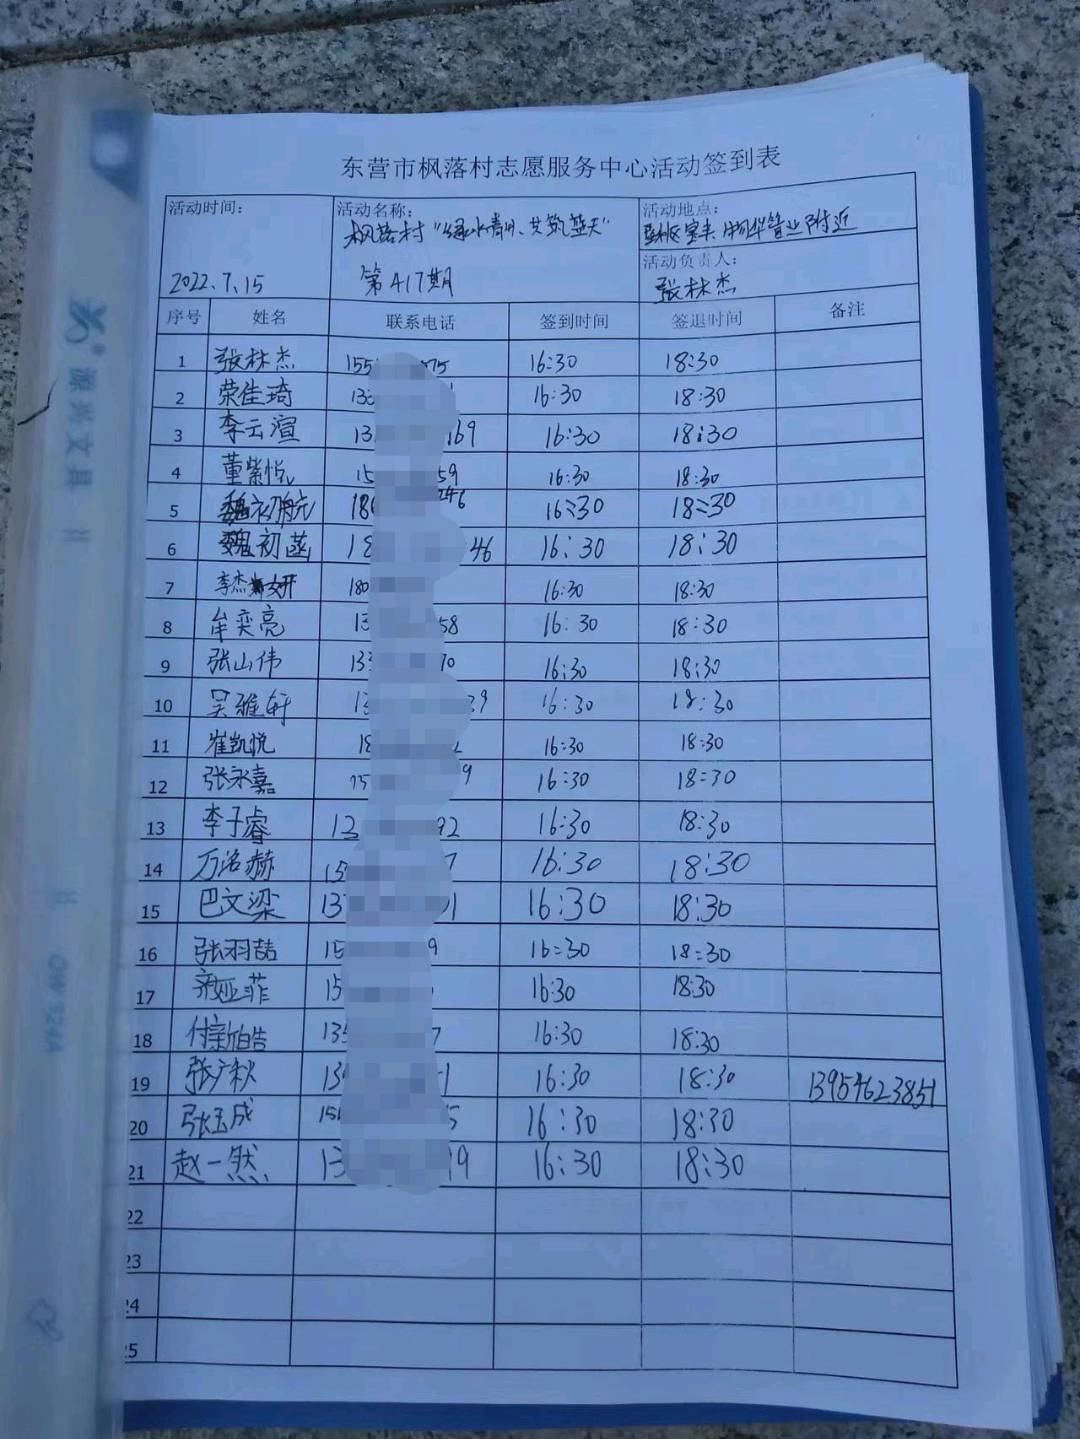 东营市枫落村志愿服务中心活动签到表
活动时间: 2022.7.15
活动名称: 枫落村“绿水青山、共筑蓝天” 第417期
活动地点: 附近
活动负责人: 张林杰
序号 姓名 联系电话 签到时间 签退时间 备注
1 张林杰 155 75 16:30 18:30
2 荣佳琦 133 16:30 18:30
3 李云渲 13 169 16:30 18:30
4 董紫悦 15 59 16:30 18:30
5 魏初航 180 246 16:30 18:30
6 魏初菡 18 46 16:30 18:30
7 李杰妍 180 16:30 18:30
8 牟奕亮 13 58 16:30 18:30
9 张山伟 133 70 16:30 18:30
10 吴雅轩 13 39 16:30 18:30
11 崔凯悦 18 16:30 18:30
12 张永嘉 15 9 16:30 18:30
13 李子睿 13 92 16:30 18:30
14 万洺赫 15 7 16:30 18:30
15 巴文梁 13 01 16:30 18:30
16 张羽喆 15 9 16:30 18:30
17 亚菲 15 16:30 18:30
18 付新皓 135 7 16:30 18:30
19 张广秋 139 1 16:30 18:30 13954623851
20 张玉成 151 5 16:30 18:30
21 赵一然 13 99 16:30 18:30
22
23
24
25
振兴文具